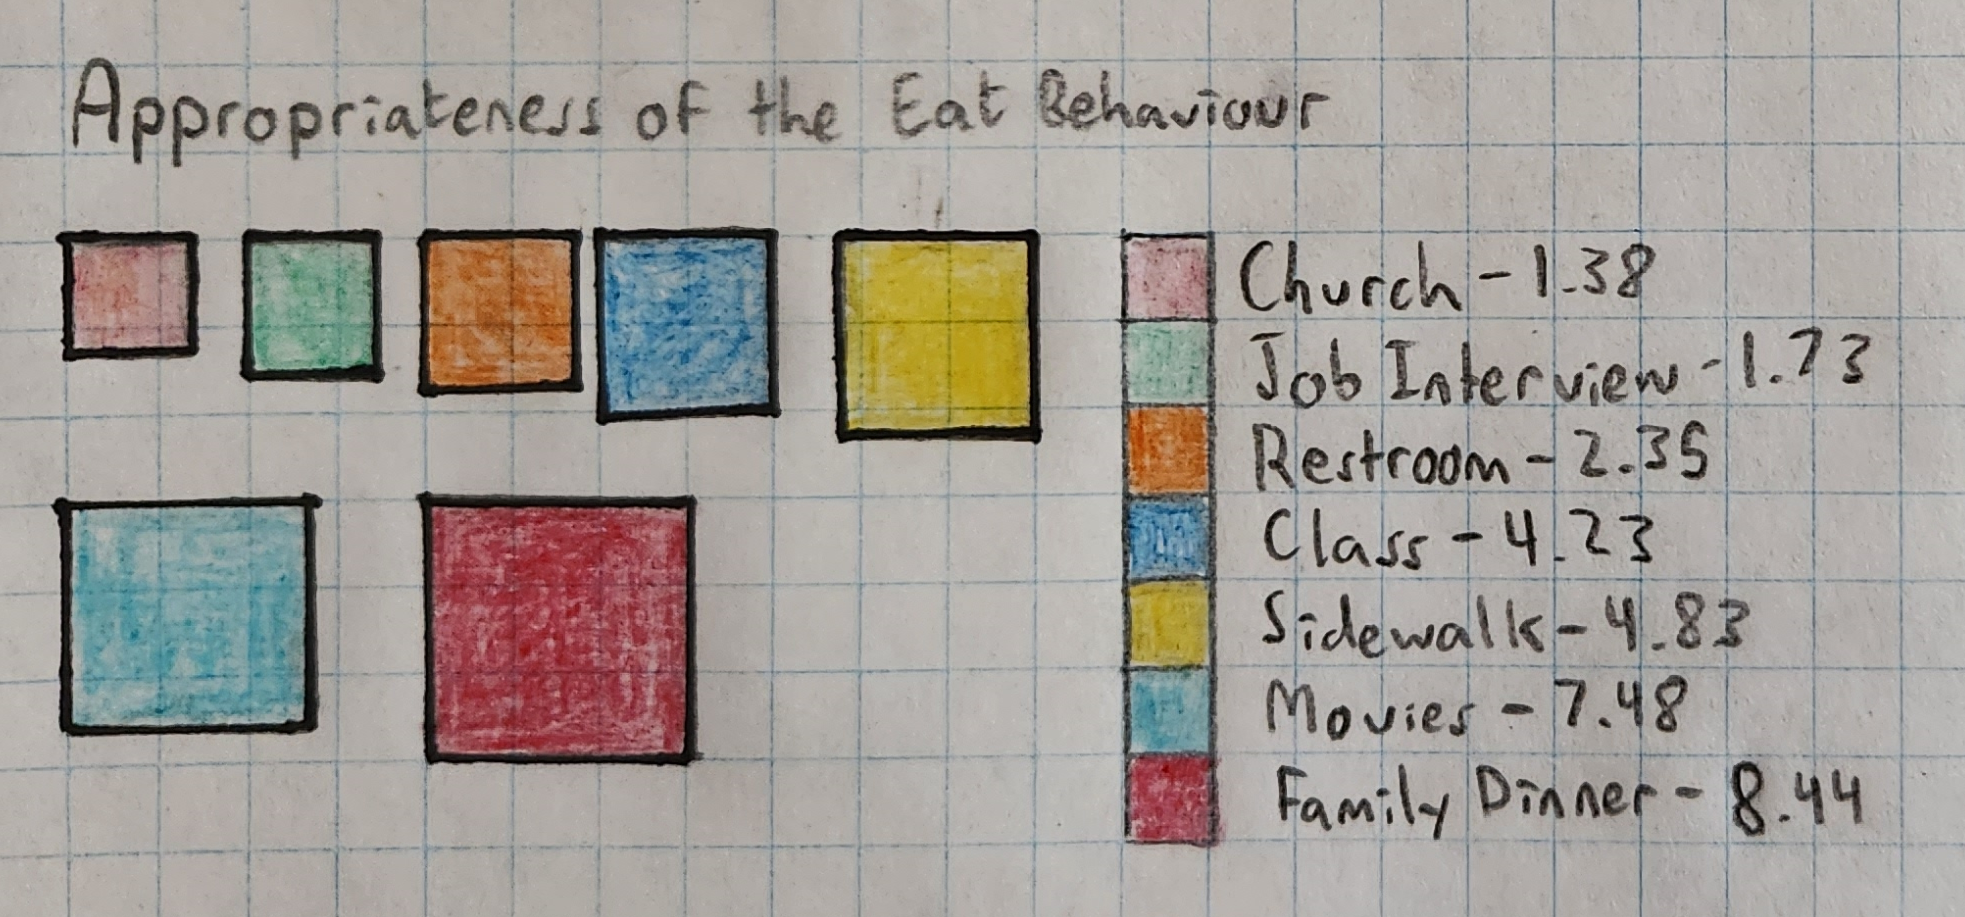 Appropriateness of the Eat Behaviour
Church - 1.38
Job Interview - 1.73
Restroom - 2.35
Class - 4.23
Sidewalk - 4.83
Movies - 7.48
Family Dinner - 8.44